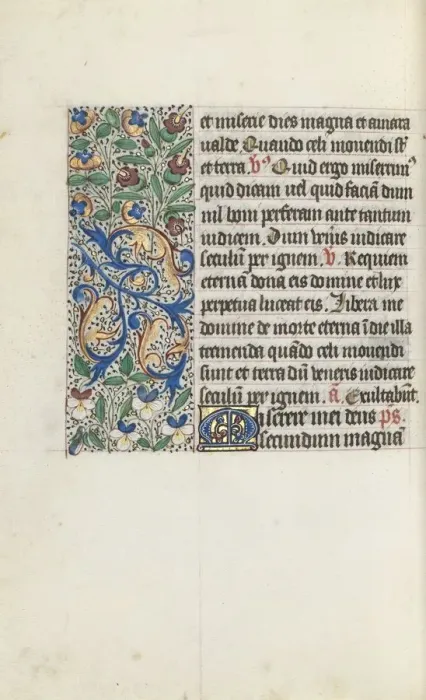 et miserie dies magna et amara
valde. Quando celi mouendi st̄
et terra. v̄ꝰ Quid ergo miserrimꝰ
quid dicam uel quid faciā dum
nil boni perferam ante tantum
iudicem. Dum veneris iudicare
seculū per ignem. v. Requiem
eternā dona eis domine et lux
perpetua luceat eis. Libera me
domine de morte eterna ī die illa
tremenda quādo celi mouendi
sunt et terra dū veneris iudicare
seculū per ignem. ā. Exultabūt.
Miserere mei deus ps.
secundum magnā